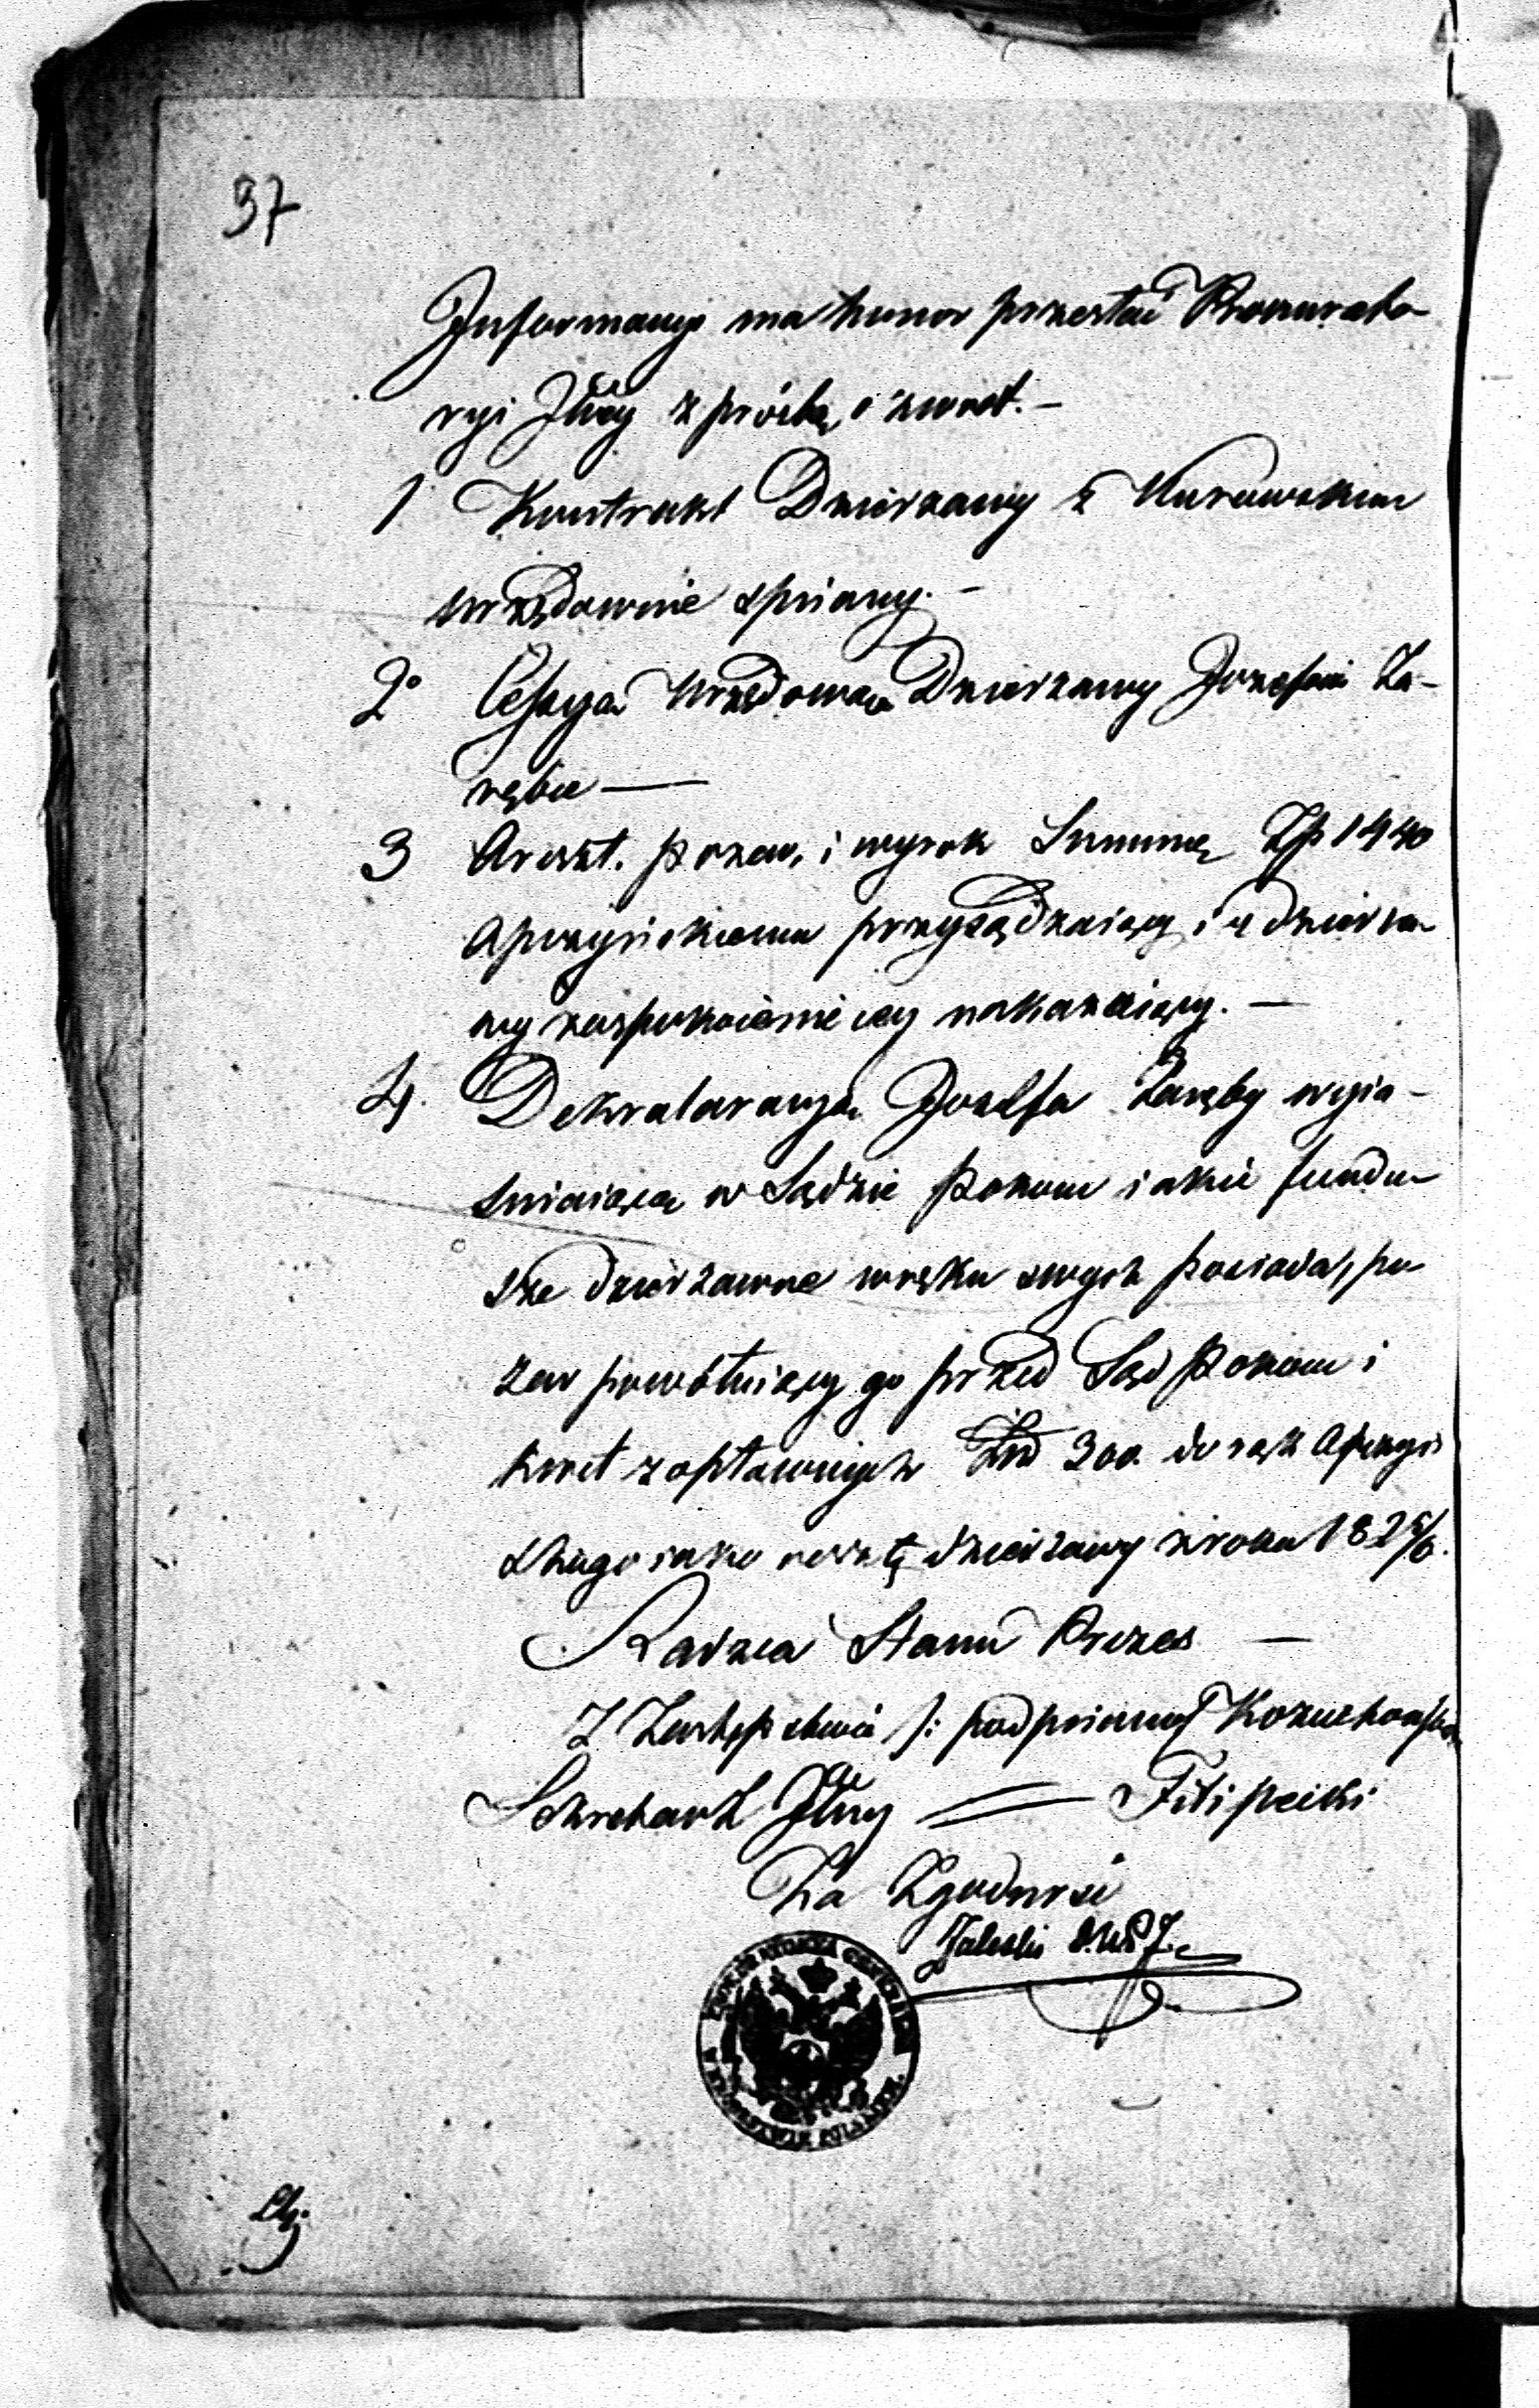 37
Informacyi ma honor przesłać Prokurato
ryi Jlney z prośbą o zwrot. —
1 Kontrakt Dzierżawy z Kurowskim
urzędownie spisany. —
2° Cessya Urzędowa Dzierżawy Jozefowi Za-
rębie —
3 Areszt. pozew, i wyrok Summę Zp 1440
przysądzaiący, i z dzierża
wy zaspokoienie iey nakazuiący. —
4. Deklaracya Jozefa Zaręby wyia-
śniaiąca w Sądzie Pokoiu iakie fundu-
sze dzierżawne w ręku swych posiada, po
zew powołuiący go przed Sąd Pokoiu i
kwit z opłaconych 300. do rąk
iako resztę dzierżawy z roku 182 5/6.
Radzca Stanu Prezes —
Z Zastępstwa /: podpisany Kożuchowski
Sekretarz Jlny = Filipecki
Za Zgodność
Zaleski